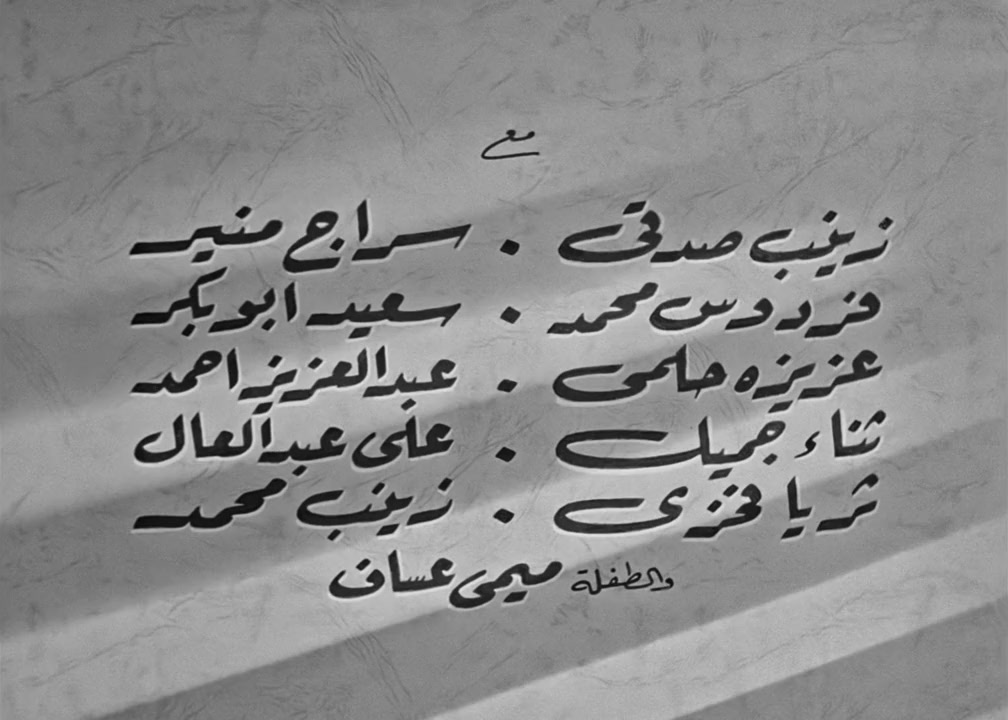 مع
زينب صدقى . سراج منير
فردوس محمد . سعيد ابو بكر
عزيزه حلمى . عبد العزيز احمد
ثناء جميل . على عبد العال
ثريا فخرى . زينب محمد
والطفلة ميمى عساف